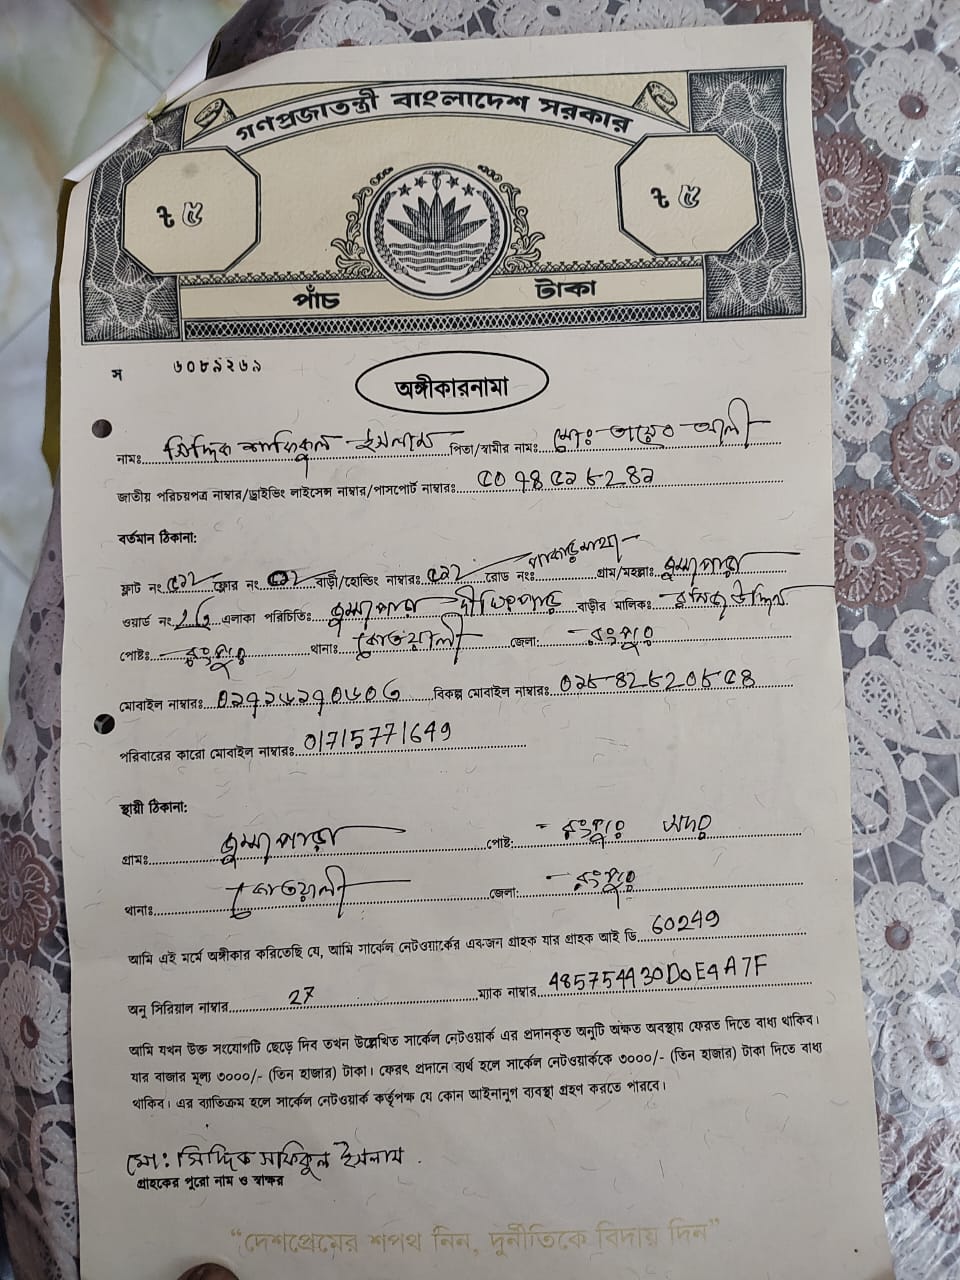 গণপ্রজাতন্ত্রী বাংলাদেশ সরকার
৳ ৫ ৳ ৫
পাঁচ টাকা
স ৬০৮৯২৬৯
অঙ্গীকারনামা
নামঃ সিদ্দিক শফিকুল ইসলাম পিতা/স্বামীর নামঃ মোঃ তায়েব আলী
জাতীয় পরিচয়পত্র নাম্বার/ড্রাইভিং লাইসেন্স নাম্বার/পাসপোর্ট নাম্বারঃ
বর্তমান ঠিকানা:
ফ্লাট নং ফ্লোর নং বাড়ী/হোল্ডিং নাম্বারঃ রোড নংঃ পাকারমাথা গ্রাম/মহল্লাঃ জুম্মাপাড়া
ওয়ার্ড নং এলাকা পরিচিতিঃ জুম্মাপাড়া বাড়ীর মালিকঃ
পোষ্টঃ রংপুর থানাঃ কোতয়ালী জেলা: রংপুর
মোবাইল নাম্বারঃ বিকল্প মোবাইল নাম্বারঃ
পরিবারের কারো মোবাইল নাম্বারঃ 01715771649
স্থায়ী ঠিকানা:
গ্রামঃ জুম্মাপাড়া পোষ্ট: রংপুর সদর
থানাঃ কোতয়ালী জেলা: রংপুর
আমি এই মর্মে অঙ্গীকার করিতেছি যে, আমি সার্কেল নেটওয়ার্কের একজন গ্রাহক যার গ্রাহক আই ডি 60249
অনু সিরিয়াল নাম্বার 27 ম্যাক নাম্বার 485754A30D0E9A7F
আমি যখন উক্ত সংযোগটি ছেড়ে দিব তখন উল্লেখিত সার্কেল নেটওয়ার্ক এর প্রদানকৃত অনুটি অক্ষত অবস্থায় ফেরত দিতে বাধ্য থাকিব।
যার বাজার মূল্য ৩০০০/- (তিন হাজার) টাকা। ফেরৎ প্রদানে ব্যর্থ হলে সার্কেল নেটওয়ার্ককে ৩০০০/- (তিন হাজার) টাকা দিতে বাধ্য
থাকিব। এর ব্যতিক্রম হলে সার্কেল নেটওয়ার্ক কর্তৃপক্ষ যে কোন আইনানুগ ব্যবস্থা গ্রহণ করতে পারবে।
মো: সিদ্দিক সফিকুল ইসলাম
গ্রাহকের পুরো নাম ও স্বাক্ষর
“দেশপ্রেমের শপথ নিন, দুর্নীতিকে বিদায় দিন”